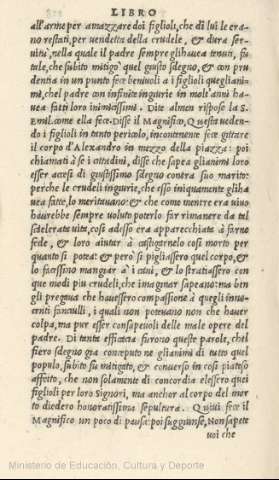 LIBRO
all'arme per amazzare doi figlioli, che di lui le era-
no restati, per uendetta della crudele, & dura ser-
uitù, nella quale il padre sempre gli hauea tenuti, fu
tale, che subito mitigò quel giusto sdegno, & con pru-
dentia in un punto fece beniuoli a i figlioli quegli ani-
mi, che'l padre con infinite ingiurie in molt'anni ha-
uea fatti loro inimicissimi. Dite almen rispose la S.
Emil. come ella fece. Disse il Magnifico, Questa ueden-
do i figlioli in tanto pericolo, incontenente fece gittare
il corpo d'Alexandro in mezzo della piazza: poi
chiamati à se i cittadini, disse che sapea gli animi loro
esser accesi di giustissimo sdegno contra suo marito:
perche le crudeli ingiurie, che esso iniquamente gli ha
uea fatte, lo meritauano: & che come mentre era uiuo
haurebbe sempre uoluto poterlo far rimanere da tal
scelerata uita, cosi adesso era apparecchiata à farne
fede, & loro aiutar à castigarnelo cosi morto per
quanto si potea: & però si pigliassero quel corpo, &
lo facessino mangiar a' i cani, & lo stratiassero con
que modi piu crudeli, che imaginar sapeano: ma ben
gli pregaua che hauessero compassione à quegli inno-
centi fanciulli, i quali non poteuano non che hauer
colpa, ma pur esser consapeuoli delle male opere del
padre. Di tanta efficacia furono queste parole, che'l
fiero sdegno gia conceputo ne gli animi di tutto quel
populo, subito fu mitigato, & conuerso in cosi piatoso
affetto, che non solamente di concordia elessero quei
figlioli per loro Signori, ma anchor al corpo del mor
to diedero honoratissima sepultura. Quiui fece il
Magnifico un poco di pausa: poi suggiunse, Non sapete
uoi che
Ministerio de Educación, Cultura y Deporte